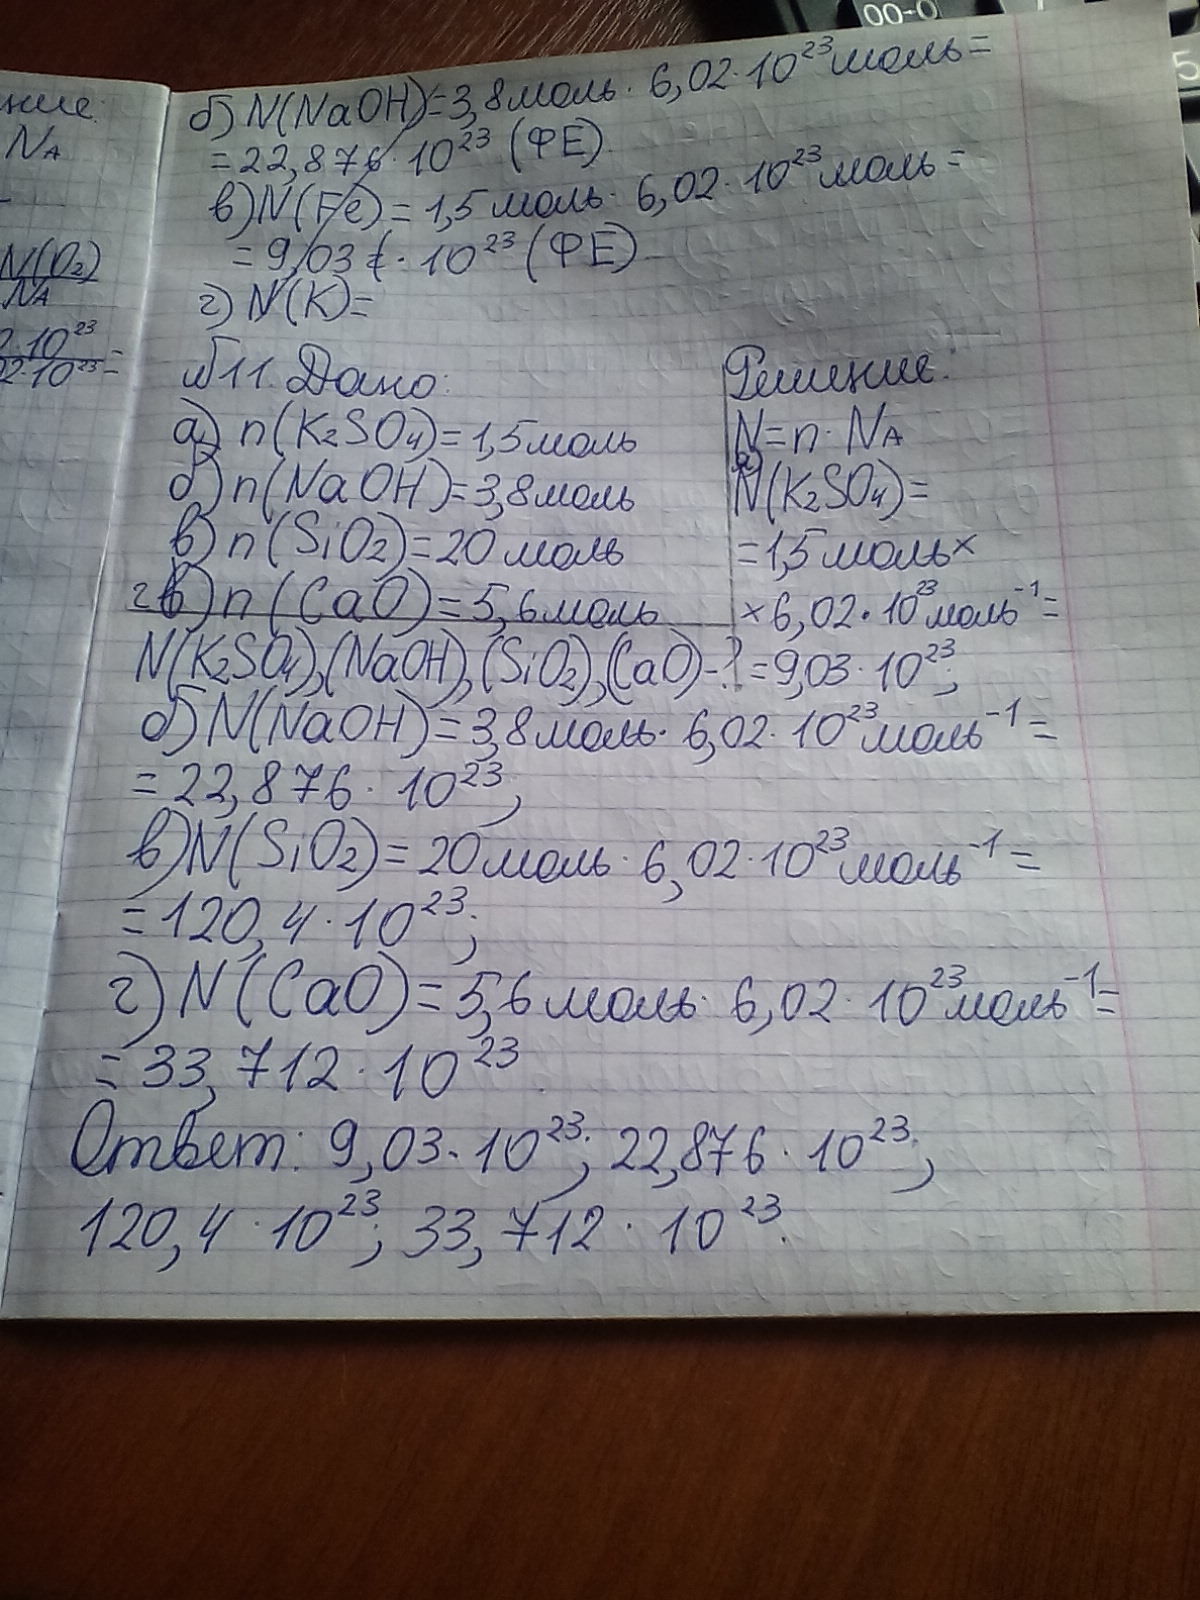 ние:
NA
N(O2)
NA
2·10²³
02·10²³ =
б) N(NaOH)=3,8моль · 6,02·10²³моль=
=22,876·10²³ (ФЕ)
в) N(Fe)=1,5 моль · 6,02·10²³моль=
=9,03 · 10²³ (ФЕ)
г) N(K)=
№11. Дано:
а) n(K2SO4)=1,5моль
б) n(NaOH)=3,8моль
в) n(SiO2)=20 моль
г) n(CaO)=5,6моль
N(K2SO4),(NaOH),(SiO2),(CaO)-?
Решение:
N=n·NA
а)
N(K2SO4)=
=1,5моль×
×6,02·10²³моль⁻¹=
=9,03·10²³;
б) N(NaOH)=3,8моль·6,02·10²³моль⁻¹=
=22,876·10²³;
в) N(SiO2)=20моль·6,02·10²³моль⁻¹=
=120,4·10²³;
г) N(CaO)=5,6моль·6,02·10²³моль⁻¹=
=33,712·10²³.
Ответ: 9,03·10²³; 22,876·10²³;
120,4·10²³; 33,712·10²³.
00-0
5